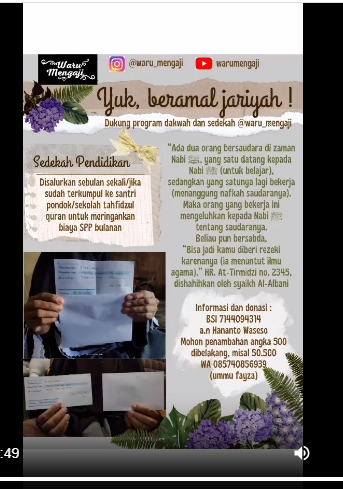 Waru
Mengaji
@waru_mengaji
warumengaji
Yuk, beramal jariyah !
Dukung program dakwah dan sedekah @waru_mengaji
Sedekah Pendidikan
Disalurkan sebulan sekali/jika
sudah terkumpul ke santri
pondok/sekolah tahfidzul
quran untuk meringankan
biaya SPP bulanan
"Ada dua orang bersaudara di zaman
Nabi ﷺ, yang satu datang kepada
Nabi ﷺ (untuk belajar),
sedangkan yang satunya lagi bekerja
(menanggung nafkah saudaranya).
Maka orang yang bekerja ini
mengeluhkan kepada Nabi ﷺ
tentang saudaranya.
Beliau pun bersabda,
"Bisa jadi kamu diberi rezeki
karenanya (ia menuntut ilmu
agama)." HR. At-Tirmidzi no. 2345,
dishahihkan oleh syaikh Al-Albani
Informasi dan donasi :
BSI 7144094314
a.n Hananto Waseso
Mohon penambahan angka 500
dibelakang, misal 50.500
WA 085740856939
(ummu fayza)
:49